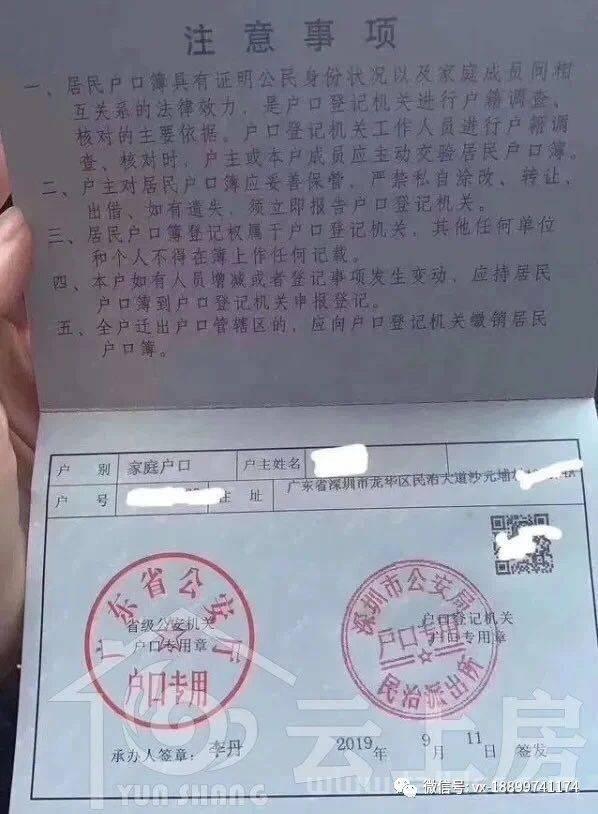 注意事项
一、居民户口簿具有证明公民身份状况以及家庭成员间相
互关系的法律效力，是户口登记机关进行户籍调查、
核对的主要依据。户口登记机关工作人员进行户籍调
查、核对时，户主或本户成员应主动交验居民户口簿。
二、户主对居民户口簿应妥善保管，严禁私自涂改、转让、
出借、如有遗失，须立即报告户口登记机关。
三、居民户口簿登记权属于户口登记机关，其他任何单位
和个人不得在簿上作任何记载。
四、本户如有人员增减或者登记事项发生变动，应持居民
户口簿到户口登记机关申报登记。
五、全户迁出户口管辖区的，应向户口登记机关缴销居民
户口簿。
户 别 家庭户口 户主姓名
户 号 住 址 广东省深圳市龙华区民治大道沙元埔
广东省公安厅
省级公安机关
户口专用章
户口专用
深圳市公安局
户口登记机关
户口专用章
户口专用
民治派出所
承办人签章：李丹 2019年 9月 11日 签发
云上房
YUN SHANG
微信号: vx-18899741174